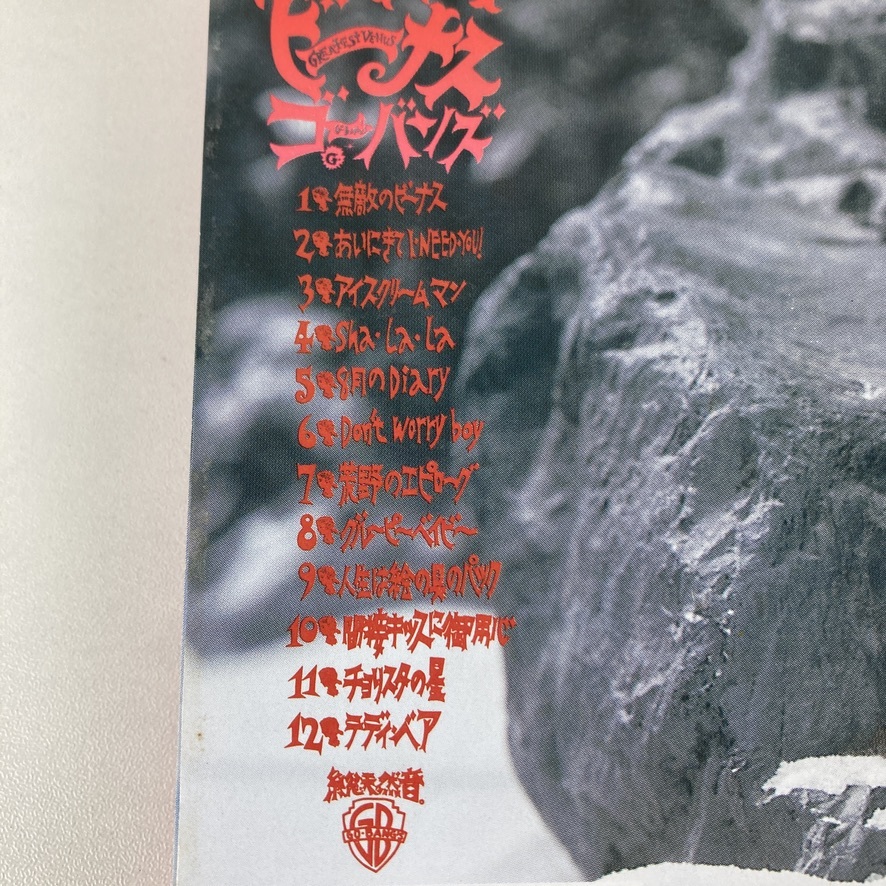 ビーナス
GREATEST VENUS
ゴーバンズ
G
1 無敵のビーナス
2 あいにきて I・NEED・YOU!
3 アイスクリームマン
4 Sha・La・La
5 8月のDiary
6 Don't worry boy
7 荒野のエピローグ
8 グルーピーベイビー
9 人生は絵の具のパック
10 間接キッスに御用心
11 チョリスタの星
12 テディ・ベア
総天然音。
GB
GO-BANG'S